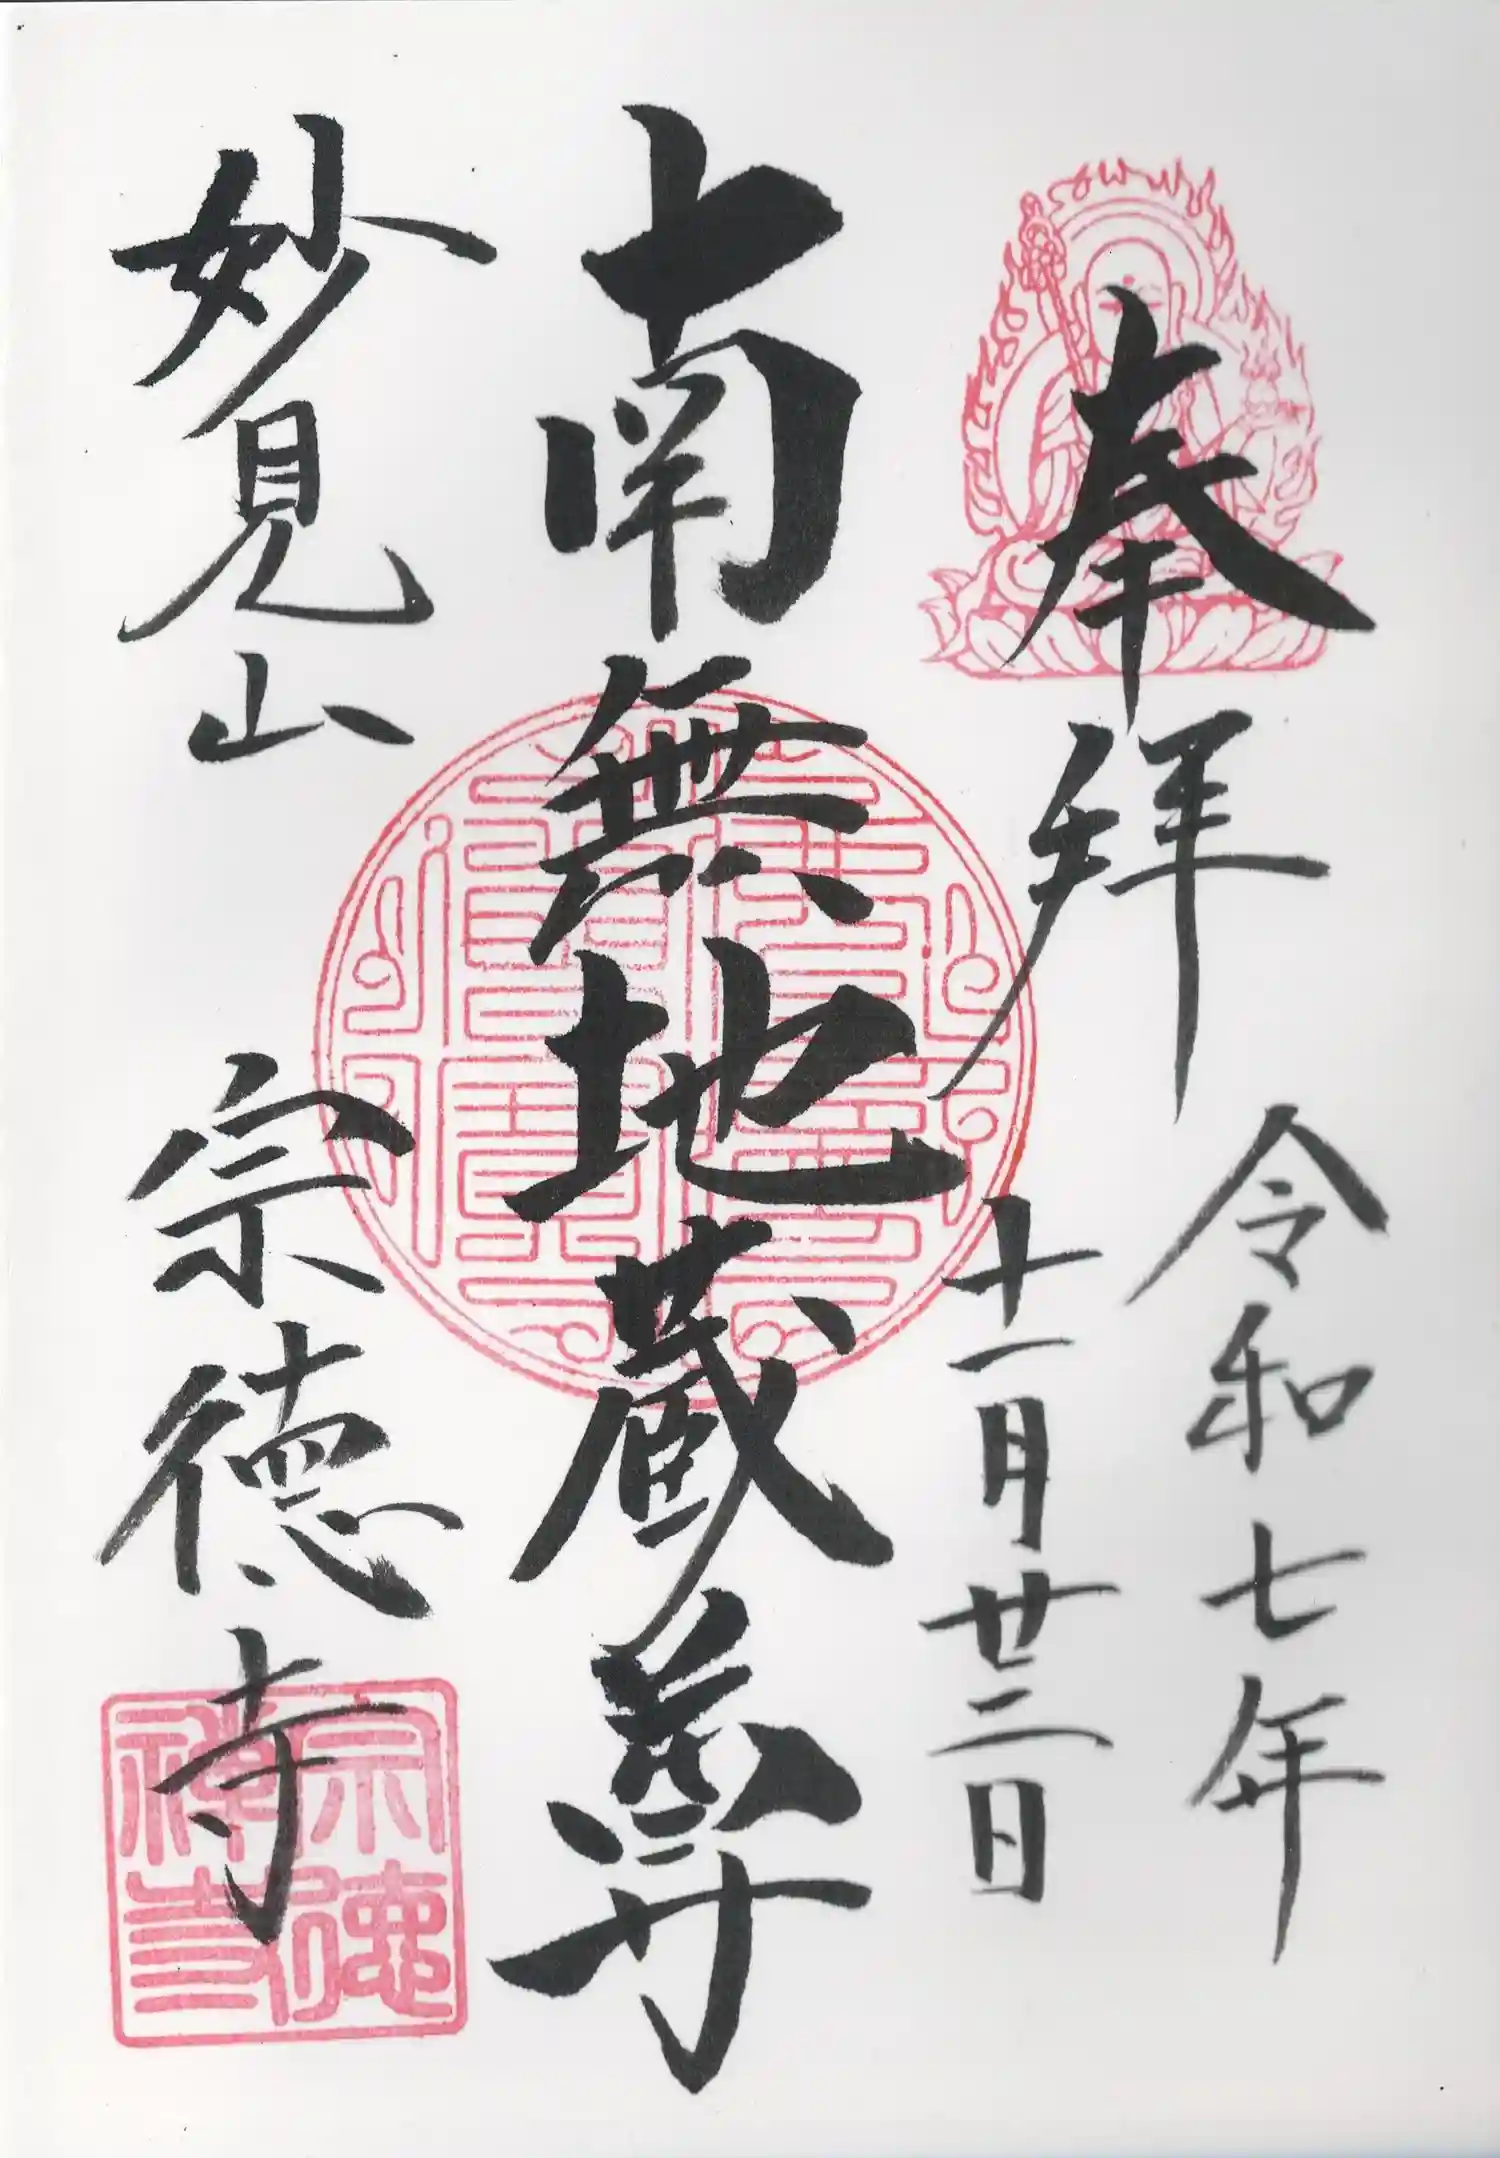 奉拝
令和七年
十一月廿三日
南無地蔵尊
妙見山 宗徳寺
宗徳禅寺